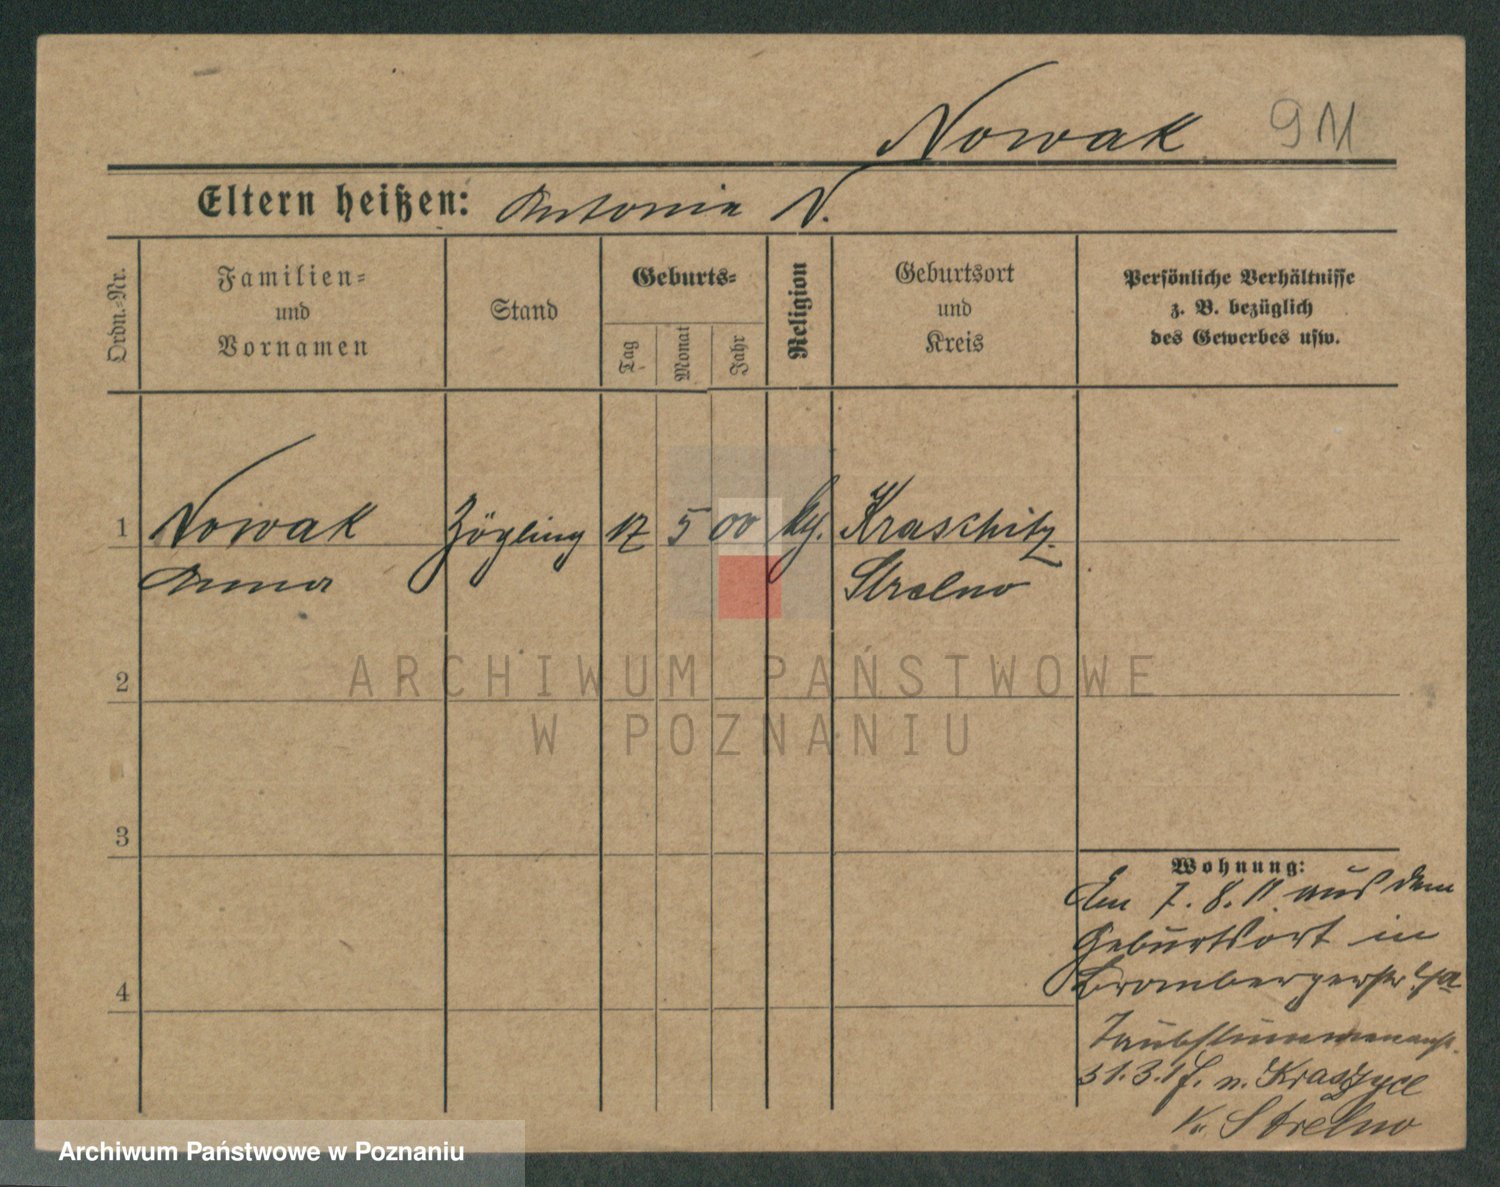 Nowak 911
Eltern heißen: Antonie N.
Ordn.=Nr.
Familien=
und
Vornamen
Stand
Geburts=
Tag
Monat
Jahr
Religion
Geburtsort
und
Kreis
Persönliche Verhältnisse
z. B. bezüglich
des Gewerbes usw.
1 Nowak Zögling 17 5 00 kg. Kraschitz
Anna Strelno
2
3
4
Wohnung:
Am 7. 8. 11 aus dem
Geburtsort in
Brombergerstr
Taubstummenanst.
31.3. n.
Kr. Strelno
ARCHIWUM PAŃSTWOWE
W POZNANIU
Archiwum Państwowe w Poznaniu